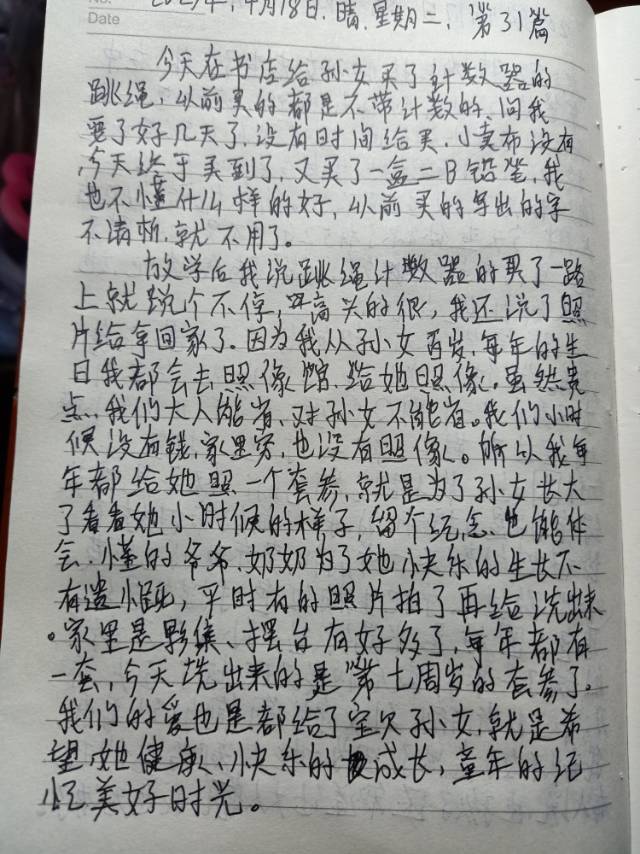 No.
Date
2023年,4月18日.晴.星期二,第31篇
今天在书店给孙女买了计数器的
跳绳,以前买的都是不带计数的,问我
要了好几天了,没有时间给买,小卖布没有
,今天终于买到了,又买了一盒二B铅笔,我
也不懂什么样的好,以前买的写出的字
不清晰,就不用了。
放学后我说跳绳计数器的买了一路
上就说个不停,高兴的很,我还说了照
片给拿回家了.因为我从孙女百岁,每年的生
日我都会去照像馆,给她照像。虽然贵
点,我们大人能省,对孙女不能省。我们小时
候没有钱,家里穷,也没有照像。所以我每
年都给她照一个套参,就是为了孙女长大
了看看她小时候的样子,留个纪念也能体
会.懂的爷爷、奶奶为了她快乐的生长不
有遗憾,平时有的照片拍了再给洗出来
。家里是影集、摆台有好多了,每年都有
一套,今天洗出来的是第七周岁的套参了.
我们的爱也是都给了宝贝孙女,就是希
望她健康、快乐的成长,童年的记
忆美好时光。